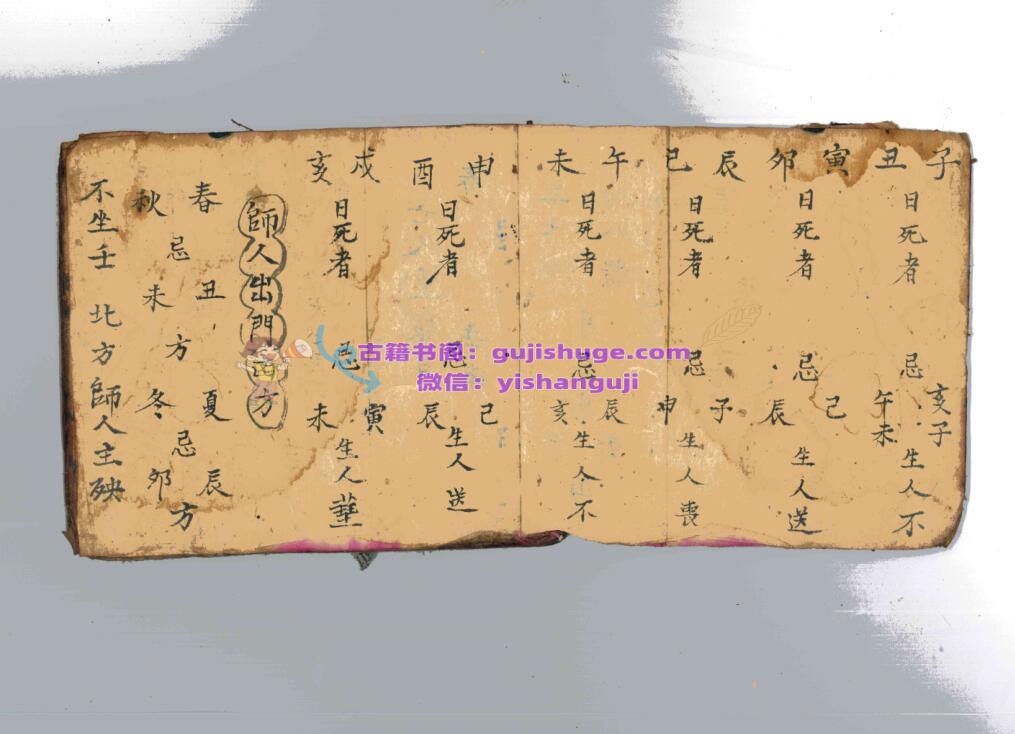 子丑 日死者 忌 亥子 午未 生人不
寅卯 日死者 忌 己辰 生人送
辰巳 日死者 忌 子申 生人喪
午未 日死者 忌 辰亥 生人不
申酉 日死者 忌 己辰 生人送
戌亥 日死者 忌 寅未 生人
師人出門 方
春 丑 夏 辰
忌 方 忌 方
秋 未 冬 卯
不坐壬 北方師人主殃
古籍书阁:gujishuge.com
微信:yishanguji